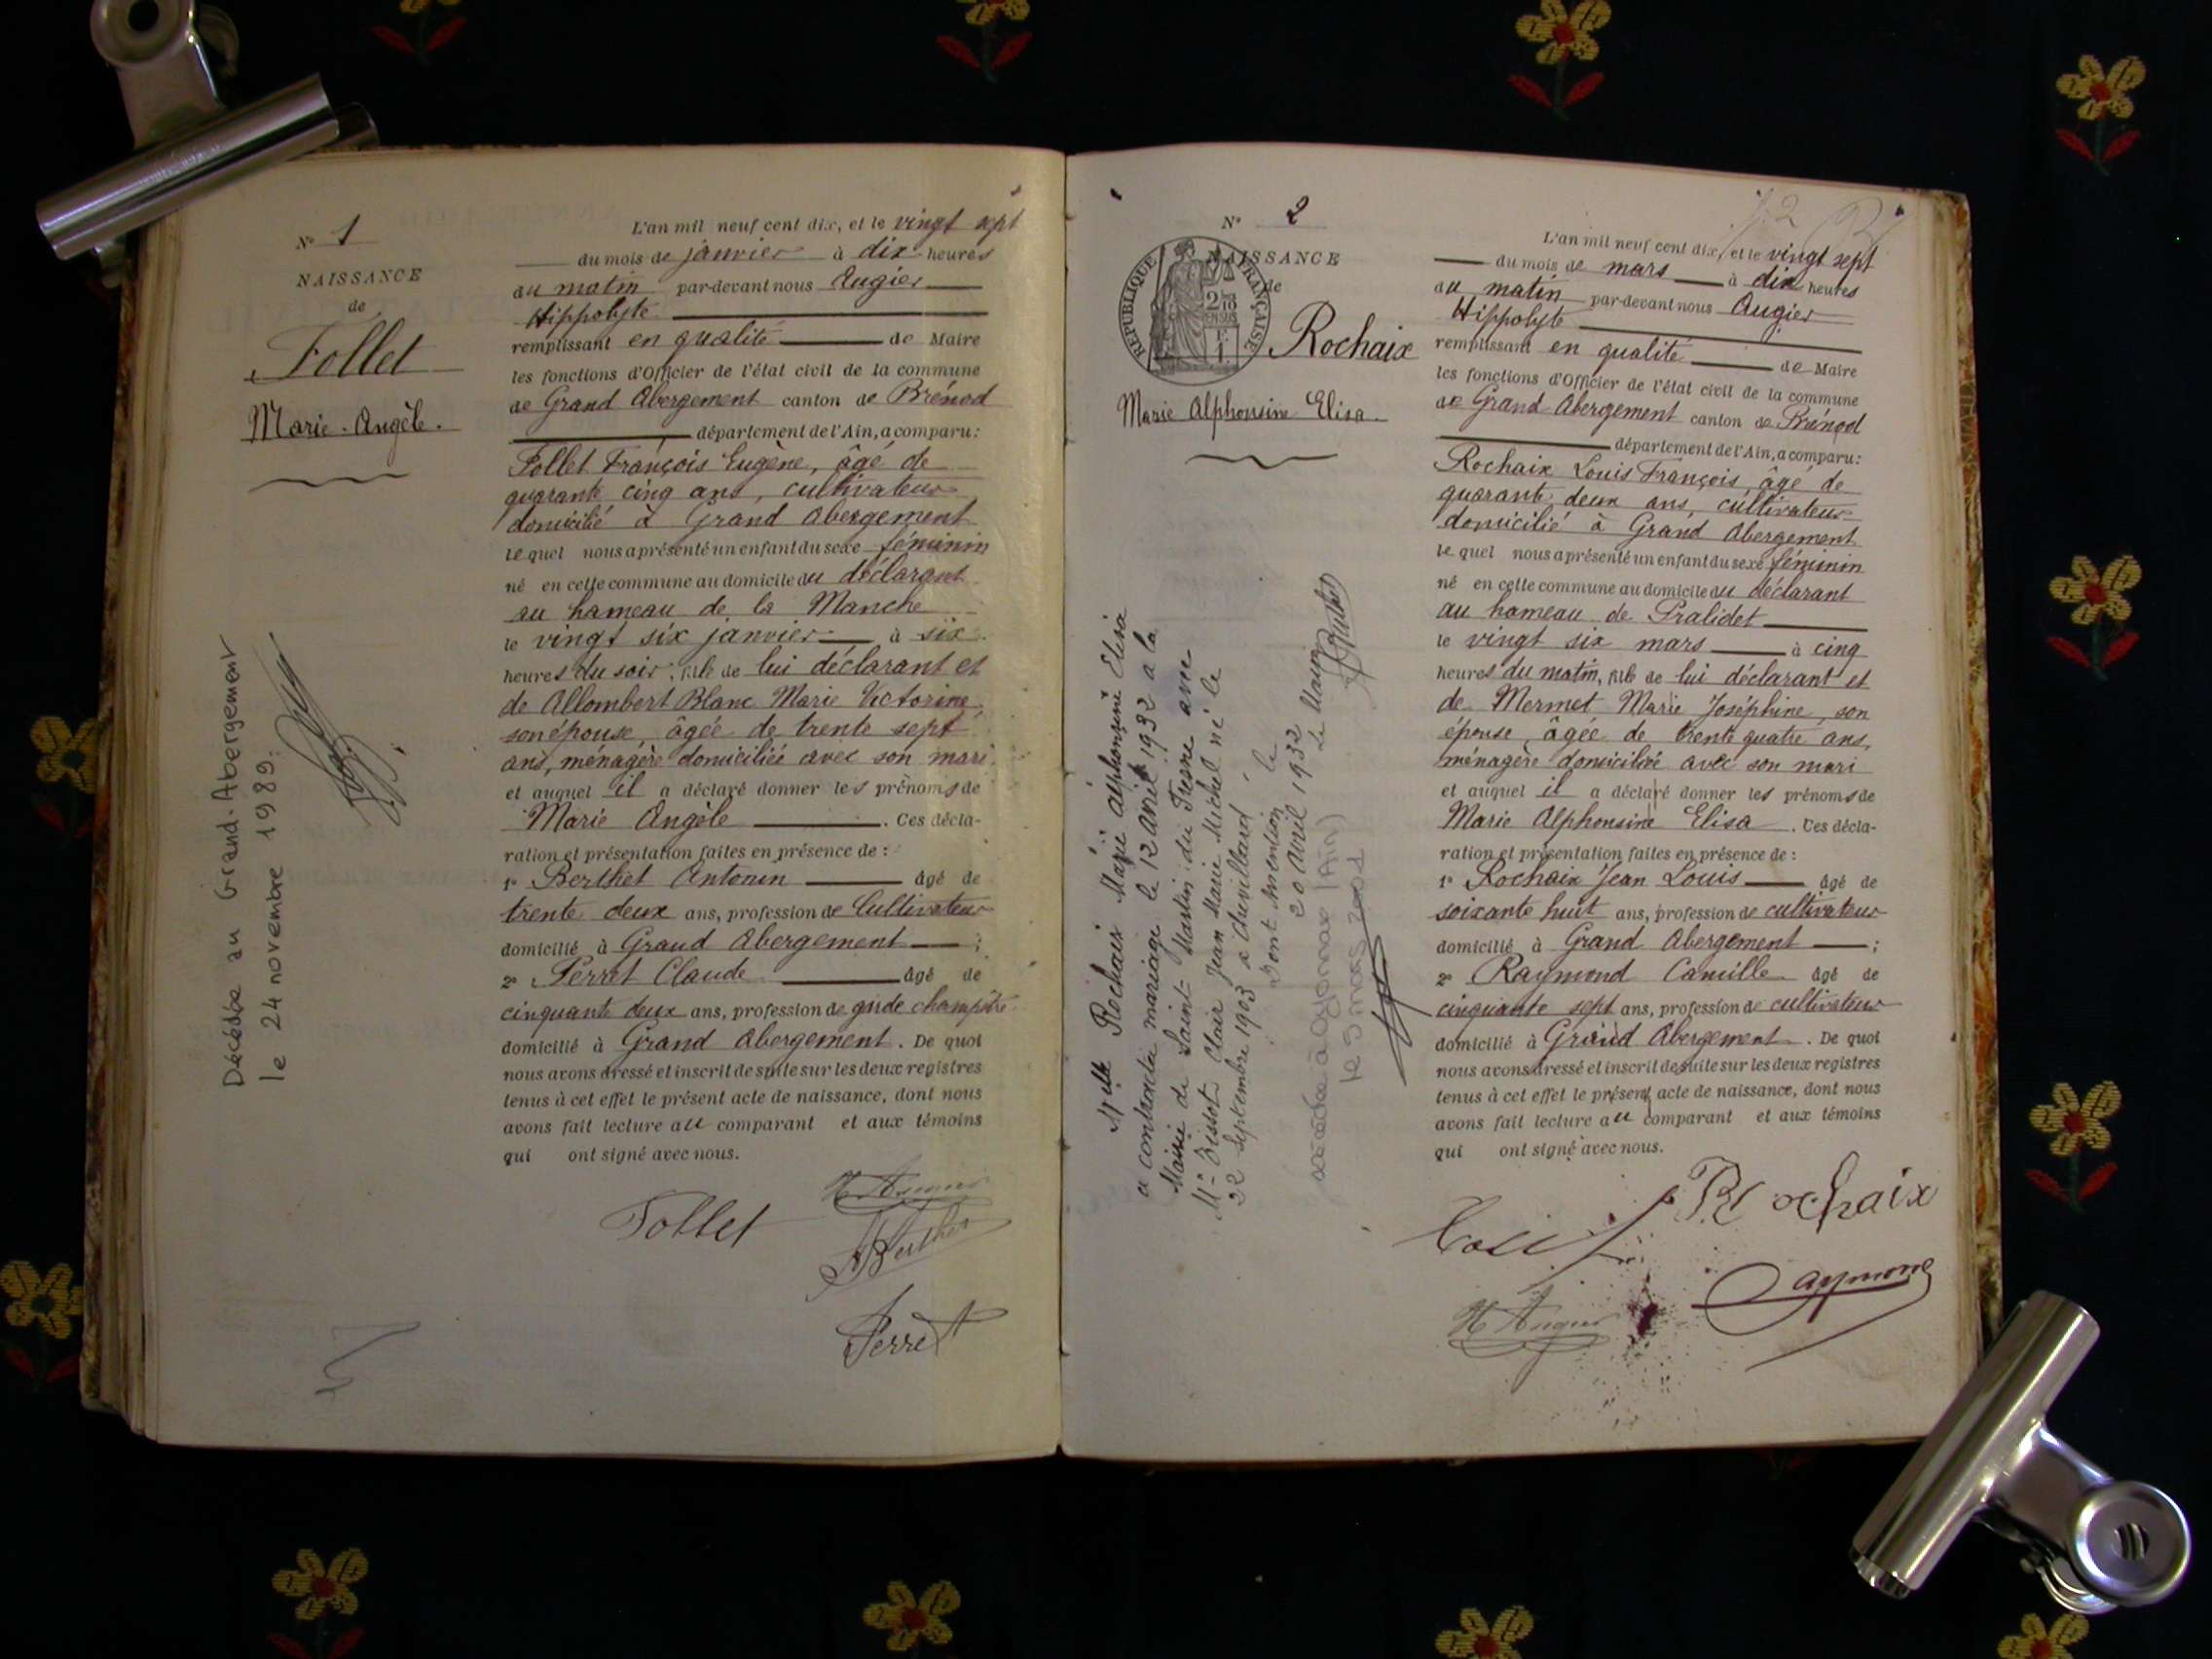 N° 1
NAISSANCE
de
Follet
Marie-Angèle.
Décédée au Grand-Abergement
le 24 novembre 1989.
L'an mil neuf cent dix, et le vingt sept
du mois de janvier à dix heures
du matin par-devant nous Augier
Hippolyte
remplissant en qualité de Maire
les fonctions d'Officier de l'état civil de la commune
de Grand Abergement canton de Brénod
département de l'Ain, a comparu:
Follet François Eugène, âgé de
quarante cinq ans, cultivateur
domicilié à Grand Abergement
lequel nous a présenté un enfant du sexe féminin
né en cette commune au domicile du déclarant
au hameau de la Manche
le vingt six janvier à six
heures du soir, fille de lui déclarant et
de Allombert Blanc Marie Victorine,
son épouse, âgée de trente sept
ans, ménagère domiciliée avec son mari
et auquel il a déclaré donner les prénoms de
Marie Angèle. Ces décla-
ration et présentation faites en présence de :
1° Berthet Antonin âgé de
trente deux ans, profession de Cultivateur
domicilié à Grand Abergement ;
2° Perret Claude âgé de
cinquante deux ans, profession de garde champêtre
domicilié à Grand Abergement. De quoi
nous avons dressé et inscrit de suite sur les deux registres
tenus à cet effet le présent acte de naissance, dont nous
avons fait lecture au comparant et aux témoins
qui ont signé avec nous.
H Augier
Follet
A Berthet
Perret
N° 2
NAISSANCE
de
RÉPUBLIQUE FRANÇAISE
Rochaix
Marie Alphonsine Elisa.
Melle Rochaix Marie Alphonsine Elisa
a contracté mariage le 12 avril 1932 à la
Mairie de Saint-Martin du Fresne avec
Mr Bissot Clair Jean Marie Michel né le
22 Septembre 1903 à Chevillard
Dont mention le
20 avril 1932
Le Maire
A Berthet
décédée à Oyonnax (Ain)
le 3 mars 2001
L'an mil neuf cent dix, et le vingt sept
du mois de mars à dix heures
du matin par-devant nous Augier
Hippolyte
remplissant en qualité de Maire
les fonctions d'Officier de l'état civil de la commune
de Grand Abergement canton de Brénod
département de l'Ain, a comparu:
Rochaix Louis François, âgé de
quarante deux ans, cultivateur
domicilié à Grand Abergement
lequel nous a présenté un enfant du sexe féminin
né en cette commune au domicile du déclarant
au hameau de Pralidet
le vingt six mars à cinq
heures du matin, fille de lui déclarant et
de Mermet Marie Joséphine, son
épouse, âgée de trente quatre ans,
ménagère domiciliée avec son mari
et auquel il a déclaré donner les prénoms de
Marie Alphonsine Elisa. Ces décla-
ration et présentation faites en présence de :
1° Rochaix Jean Louis âgé de
soixante huit ans, profession de cultivateur
domicilié à Grand Abergement ;
2° Raymond Camille âgé de
cinquante sept ans, profession de cultivateur
domicilié à Grand Abergement. De quoi
nous avons dressé et inscrit de suite sur les deux registres
tenus à cet effet le présent acte de naissance, dont nous
avons fait lecture au comparant et aux témoins
qui ont signé avec nous.
Rochaix
Raymond
H Augier